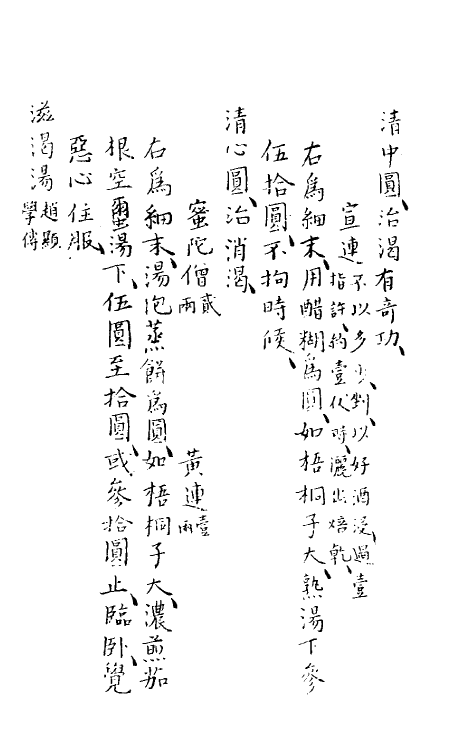 清中圓、治渴有奇功、
宣連不以多少、剉、以好酒浸過壹
指許、約壹伏時、灑出焙乾、
右爲細末、用醋糊爲圓、如梧桐子大、熟湯下參
伍拾圓、不拘時候、
清心圓、治消渴、
蜜陀僧貳兩 黃連壹兩
右爲細末、湯泡蒸餅爲圓、如梧桐子大、濃煎茄
根空蠒湯下、伍圓至拾圓、或參拾圓止、臨卧、覺
惡心住服、
滋渴湯趙顯學傳